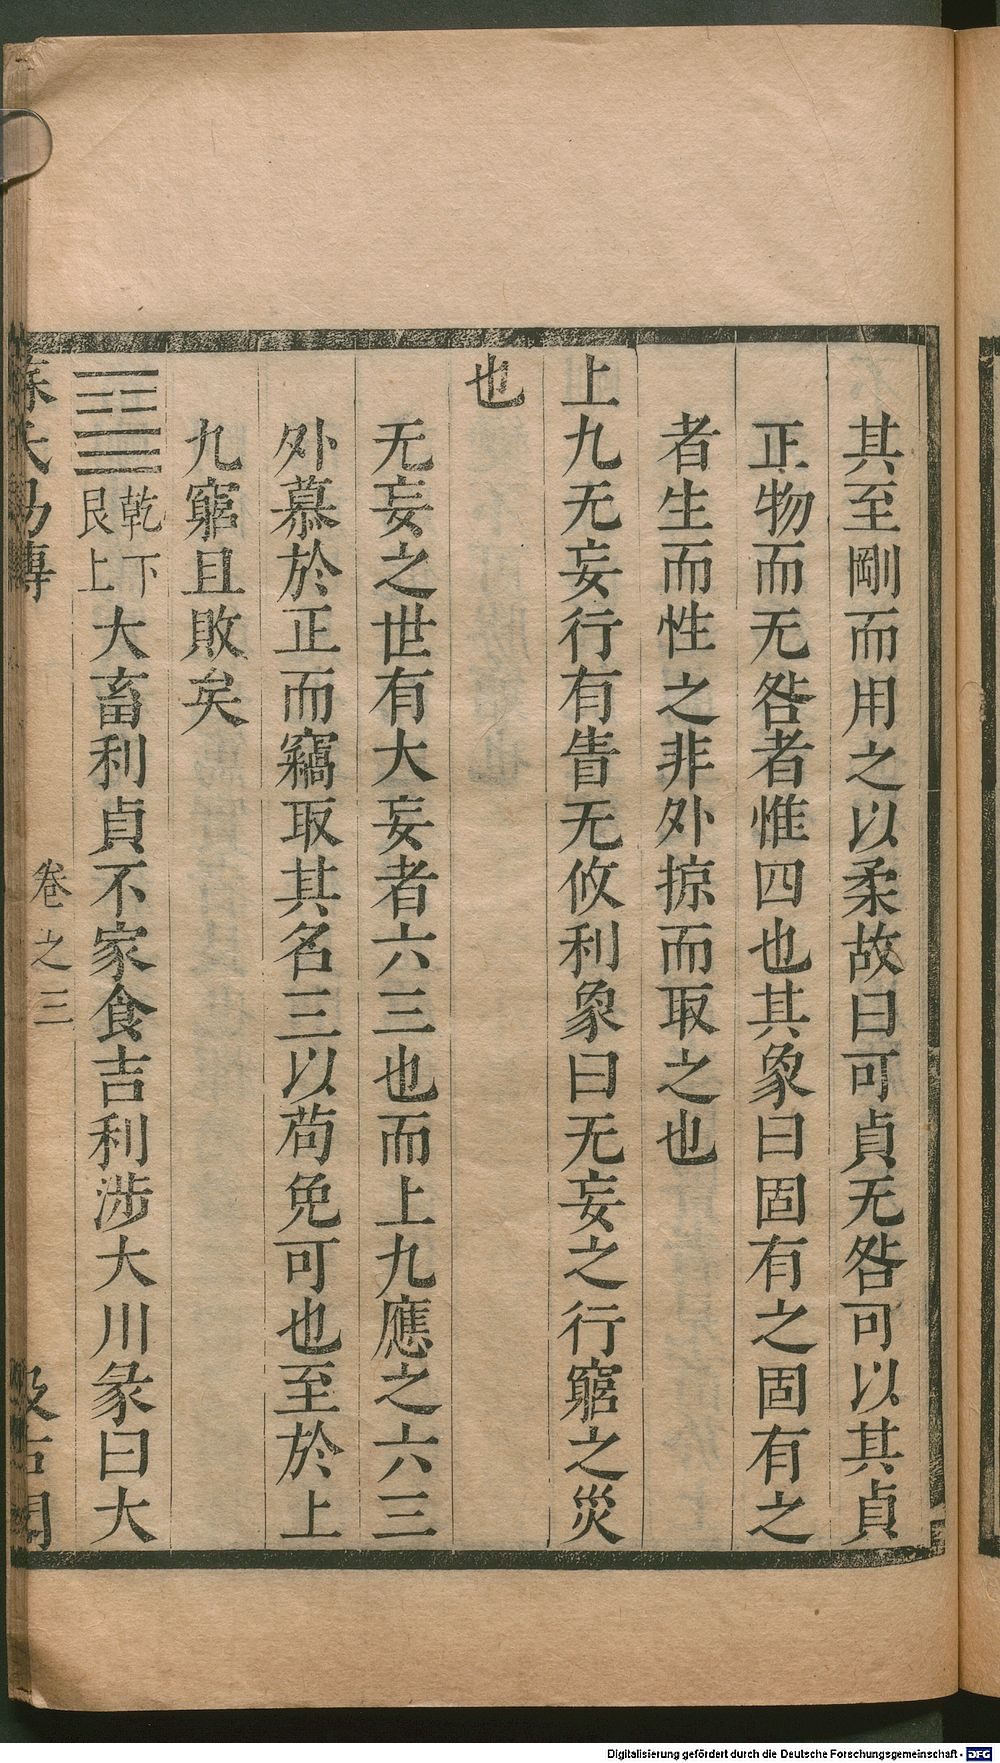 其至剛而用之以柔故曰可貞无咎可以其貞
正物而无咎者惟四也其象曰固有之固有之
者生而性之非外掠而取之也
上九无妄行有眚无攸利象曰无妄之行窮之災
也
无妄之世有大妄者六三也而上九應之六三
外慕於正而竊取其名三以苟免可也至於上
九窮且敗矣
乾下
艮上
大畜利貞不家食吉利涉大川彖曰大
蘇氏易傳
卷之三
汲古閣
Digitalisierung gefördert durch die Deutsche Forschungsgemeinschaft - DFG